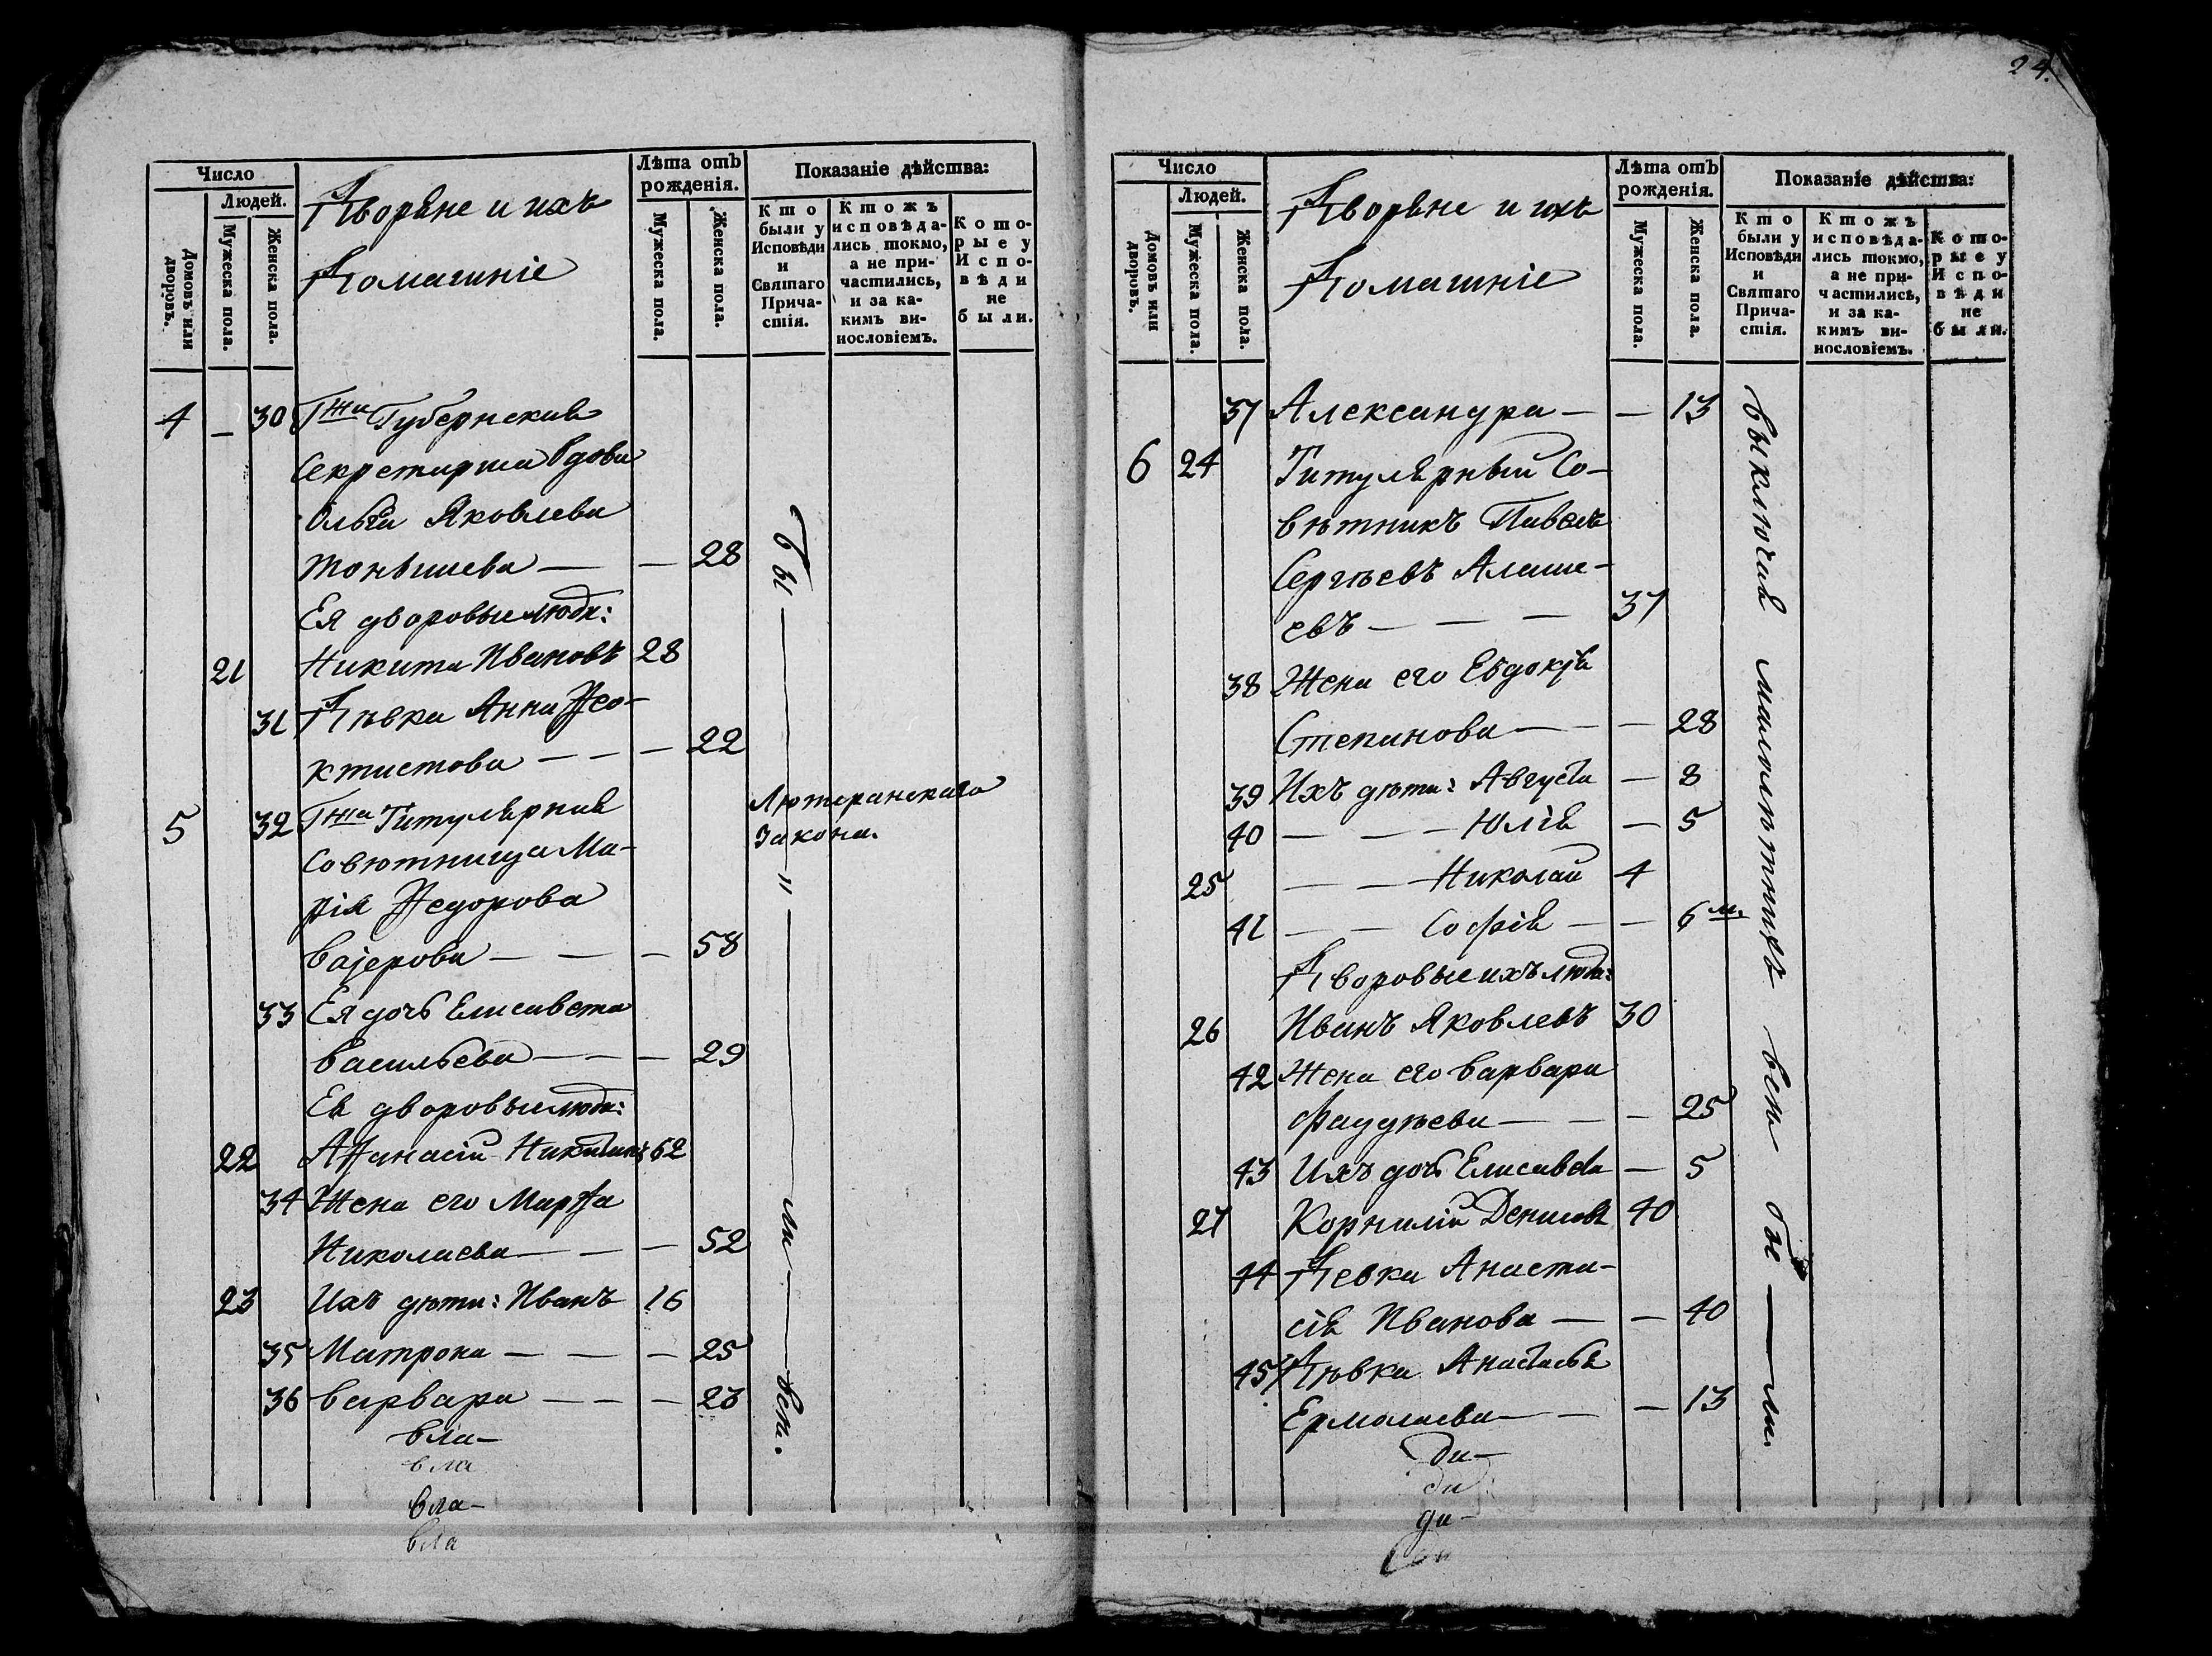 24.
Число
Людей.
Домовъ или дворовъ.
Мужеска пола.
Женска пола.
Дворяне и ихъ
Домашніе
Лѣта отъ рожденія.
Мужеска пола.
Женска пола.
Показаніе дѣйства:
Кто были у Исповѣди и Святаго Причастія.
Ктожъ исповѣдались токмо, а не причастились, и за какимъ винословіемъ.
Которые у Исповѣди не были.
4 — 30 Гжа Губернская
Секретарша вдова
Ольга Яковлева
— 28
Ея дворовые люди:
21 Никита Ивановъ 28
31 Дѣвка Анна Ѳео-
ктистова — — — 22
5 32 Гжа Титулярная
Совѣтница Ма-
рія Ѳедорова
— 58
Лютеранскаго
Закона.
33 Ея дочь Елисавета
Васильева — — — 29
Ея дворовые люди:
22 Аѳанасій Никитинъ 62
34 Жена его Марѳа
Николаева — — — 52
23 Ихъ дѣти: Иванъ 16
35 Матрона — — — 25
36 Варвара — — — 23
вла-
вла
вла-
вла
Бы — " — ли — всѣ.
Число
Людей.
Домовъ или дворовъ.
Мужеска пола.
Женска пола.
Дворяне и ихъ
Домашніе
Лѣта отъ рожденія.
Мужеска пола.
Женска пола.
Показаніе дѣйства:
Кто были у Исповѣди и Святаго Причастія.
Ктожъ исповѣдались токмо, а не причастились, и за какимъ винословіемъ.
Которые у Исповѣди не были.
37 Александра — — 13
6 24 Титулярный Со-
вѣтникъ Павелъ
Сергѣевъ Алаше-
евъ — — — 37
38 Жена его Евдокія
Степанова — — — 28
39 Ихъ дѣти: Августа — 8
40 — — — Юлія — 5
25 — — Николай 4
41 — — Софія — — 6 м.
Дворовые ихъ люди:
26 Иванъ Яковлевъ 30
42 Жена его Варвара
Фаддѣева — — — 25
43 Ихъ дочь Елисавета — 5
27 Корнилій Денисовъ 40
44 Девка Анаста-
сія Иванова — — 40
45 Дѣвка Анастасья
Ермолаева — — — 13
ди-
ди
ди-
выключая малолѣтнихъ всѣ бы — ли.